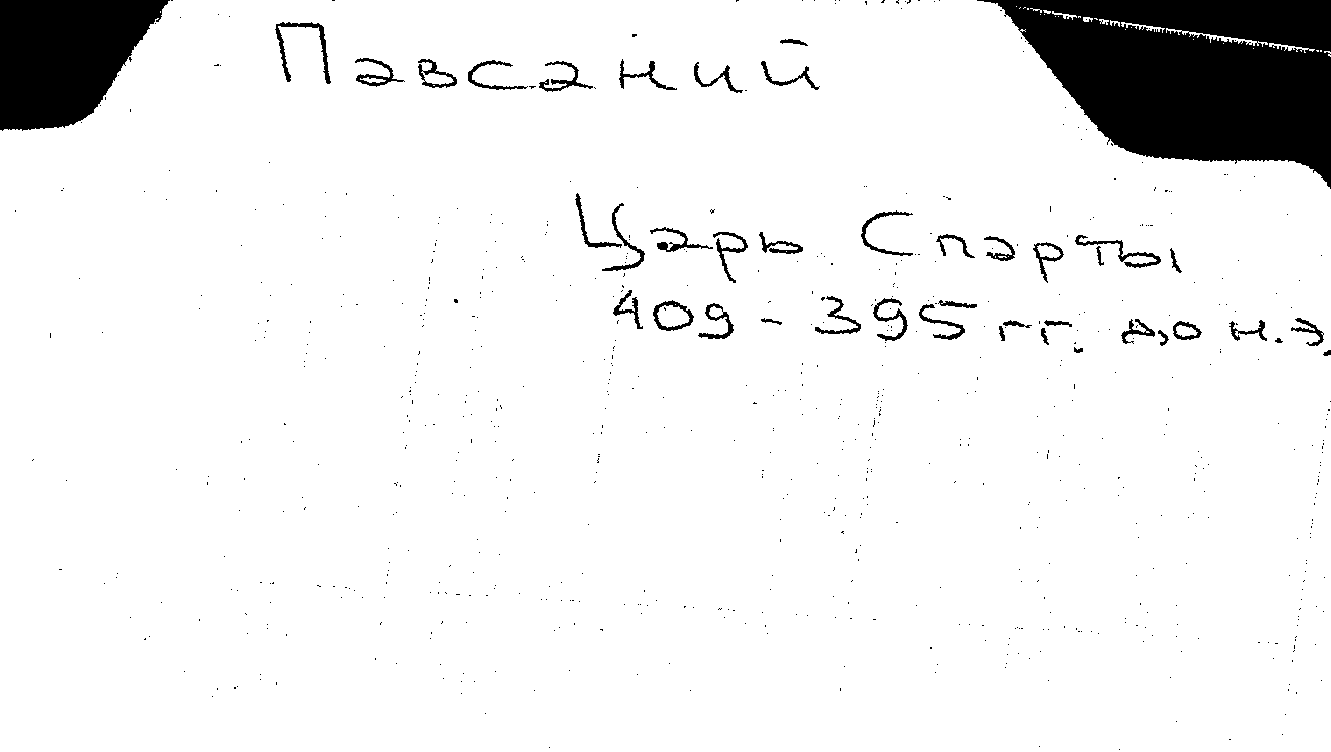 Павсаний
Царь Спарты
409 - 395 гг. до н.э.